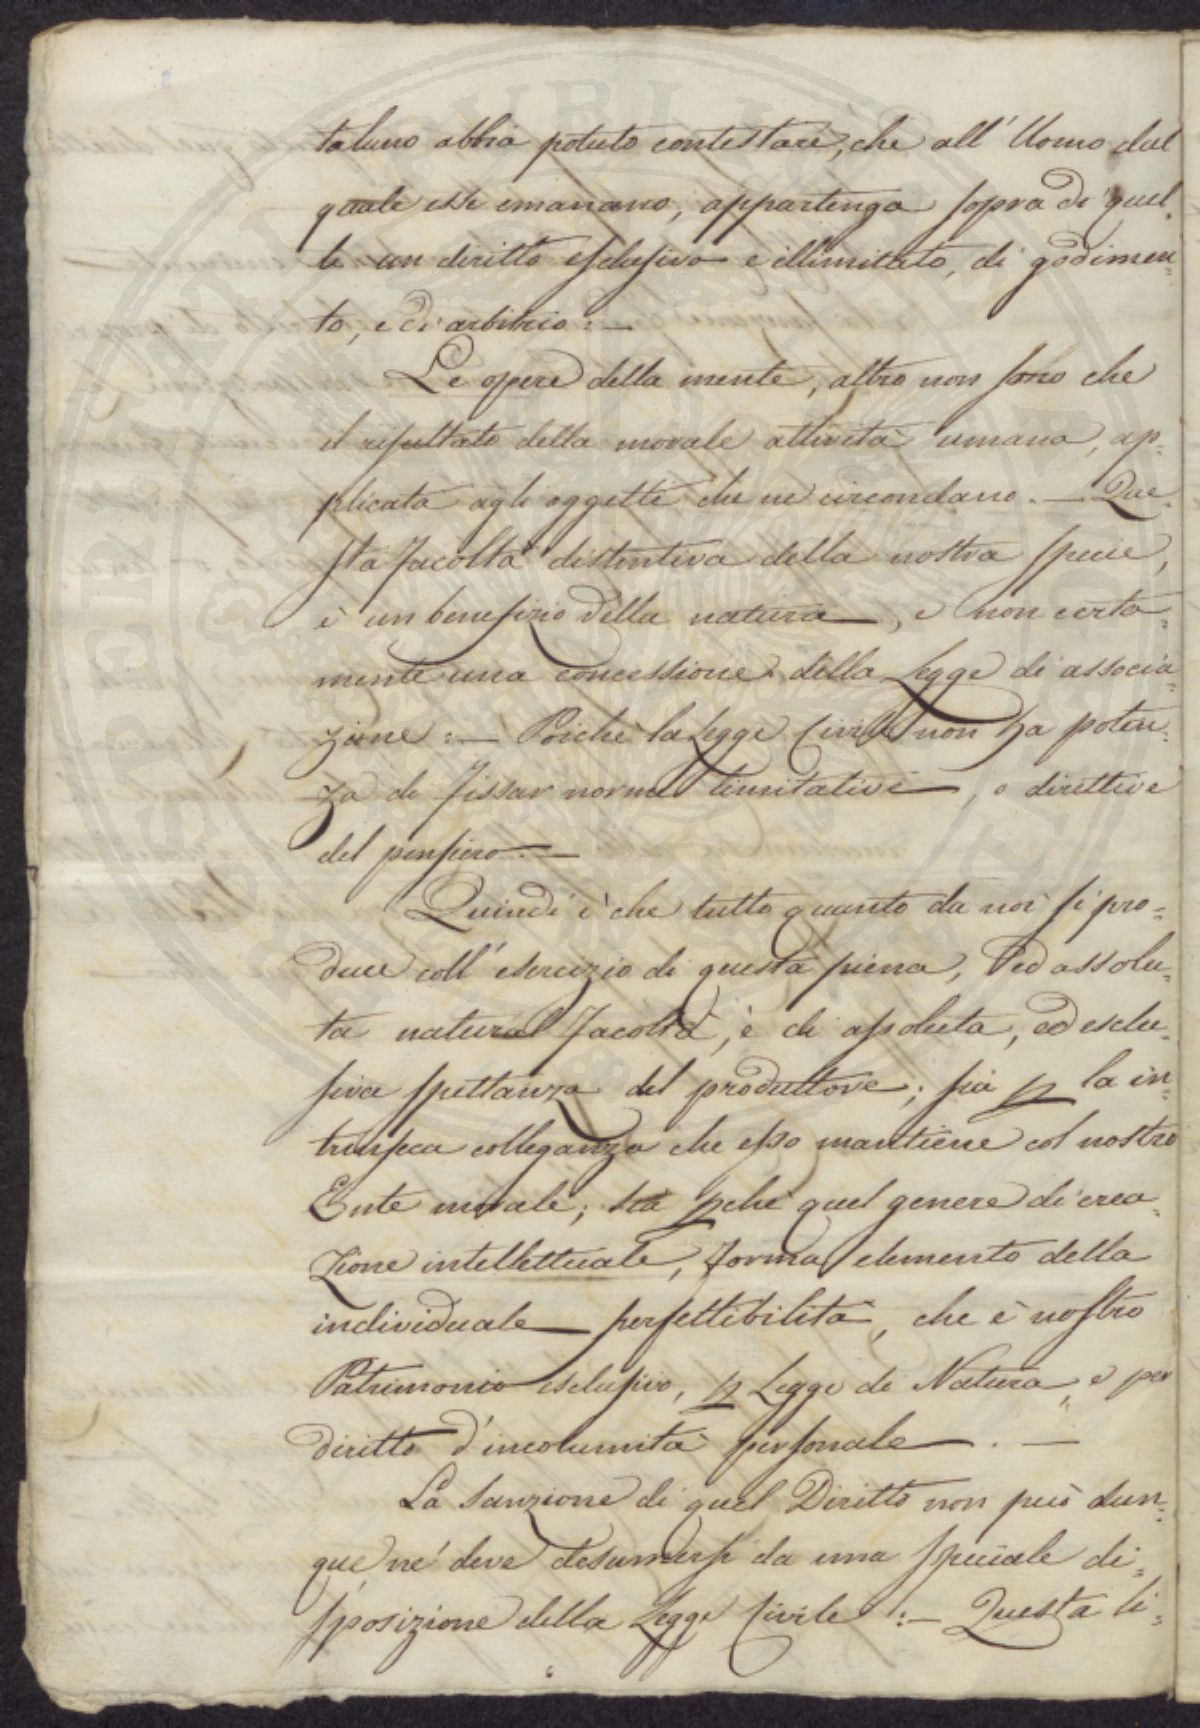 taluno abbia potuto contestare, che all'Uomo dal
quale esse emanano, appartenga sopra di quel=
le un diritto esclusivo e illimitato, di godimen=
to, e di arbitrio:—
Le opere della mente, altro non sono che
il risultato della morale attività umana, ap=
plicata agli oggetti che ne circondano.— Que=
sta facoltà distintiva della nostra specie,
è un benefizio della natura, e non certa=
mente una concessione della Legge di associa=
zione:— Poichè la Legge Civile non ha poten=
za di fissar norme limitative, o direttive
del pensiero.—
Quindi è che tutto quanto da noi si pro=
duce coll'esercizio di questa piena, ed assolu=
ta natural facoltà, è di assoluta, ed esclu=
siva spettanza del produttore; sia p la in=
trinseca colleganza che esso mantiene col nostro
Ente morale; sia pchè quel genere di crea=
zione intellettuale, forma elemento della
individuale perfettibilità, che è nostro
Patrimonio esclusivo, p Legge di Natura, e per
diritto d'incolumità personale.—
La Sanzione di quel Diritto non può dun=
que, nè deve desumersi da una speciale di=
sposizione della Legge Civile:— Questa li=